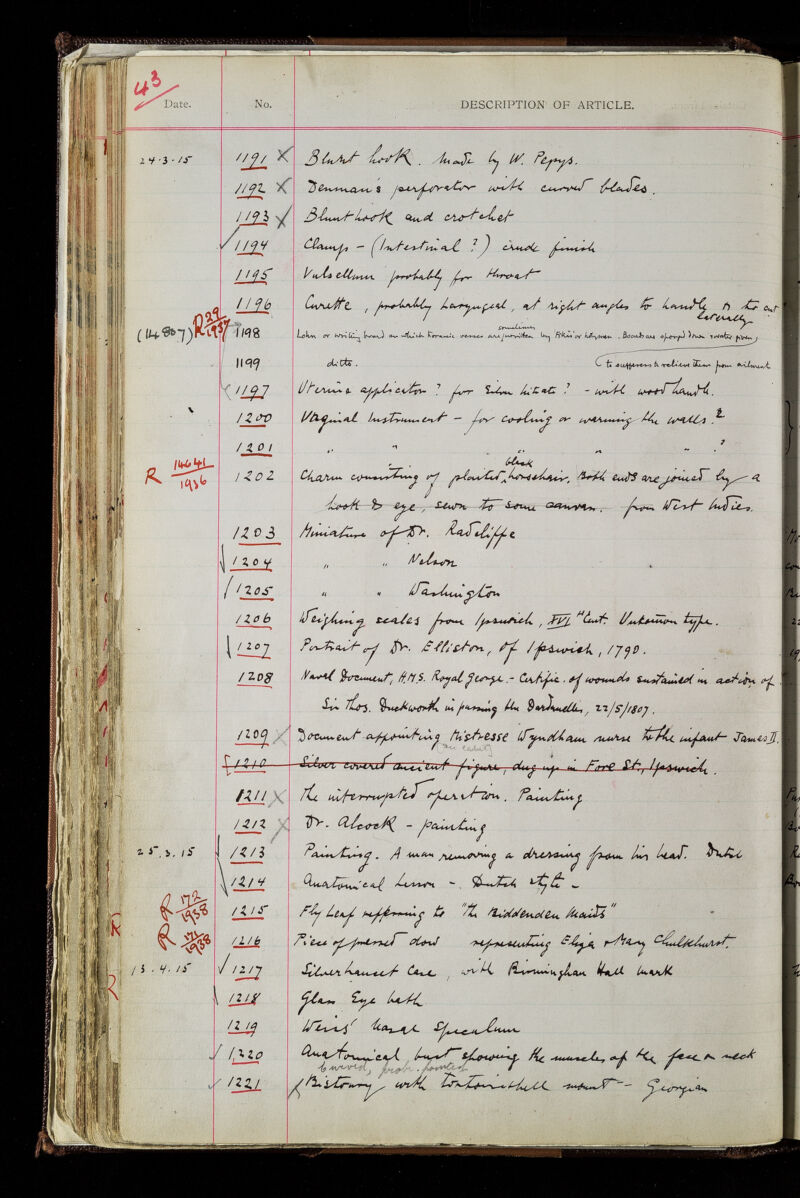 43
Date. No. DESCRIPTION OF ARTICLE.
24.3.15 1191 X Blunt hook. Made by W. Pepys.
1192 X Denman's perforator with curved blades.
1193 X Blunt hook and crotchet
✓ 1194 Clamp - (Intestinal ?) crude finish
1195 Vulsellum probably for throat
1196 Curette, probably Laryngeal, at right angles to handle
laterally
(14807) R 29/1937 1198 Lohn or writing board on which Koranic verses are sometimes written by Akis or holymen. Boards are sponged down &
1199 ditto. (to sufferers to relieve them from ailment
1197 Uterine applicator? for Silver Nitrate? - with wood handle.
1200 Vaginal Instrument - for cooling or warming the walls. ?
1201 " " " " ?
R 14641/1936 1202 Charm consisting of plaited black horsehair. Both ends are joined by a
hook & eye, sewn to some canvas. from West Indies.
1203 Miniature of Dr. Radcliffe
1204 " " Nelson
1205 " " Washington
1206 Weighing scales from Ipswich, XVI" Cent. Unknown type.
1207 Portrait of Dr. Elliston, of Ipswich, 1790.
1208 Naval Document, H.M.S. Royal George. - Certific. of wounds sustained in action of
Sir Thos. Duckworth in passing the Dardanelles, 22/5/1807.
1209 X Document appointing Mistresse Wyndham nurse to the infant James II.
1210 Silver covered ancient figure, dug up in Fore St., Ipswich.
1211 X The interrupted operation. Painting
1212 X Dr. Alcock - painting
25.3.15 1213 Painting. A man removing a dressing from his head. Dutch
1214 Anatomical Lesson - Dutch style -
R 172/1938 1215 Fly Leaf referring to "The Biddenden Maids"
R R 171/1938 1216 Piece of pressed representing Eliza & Mary Chulkhurst.
R 13.4.15 ✓ 1217 Silver Lancet Case, with Birmingham Hall Mark
1218 Glass Eye bath
1219 Weiss' Nasal Speculum
✓ 1220 Anatomical bust showing the muscles of the face & neck
curved, prob. pointed
✓ 1221 Bistoury with tortoiseshell mount - Georgian